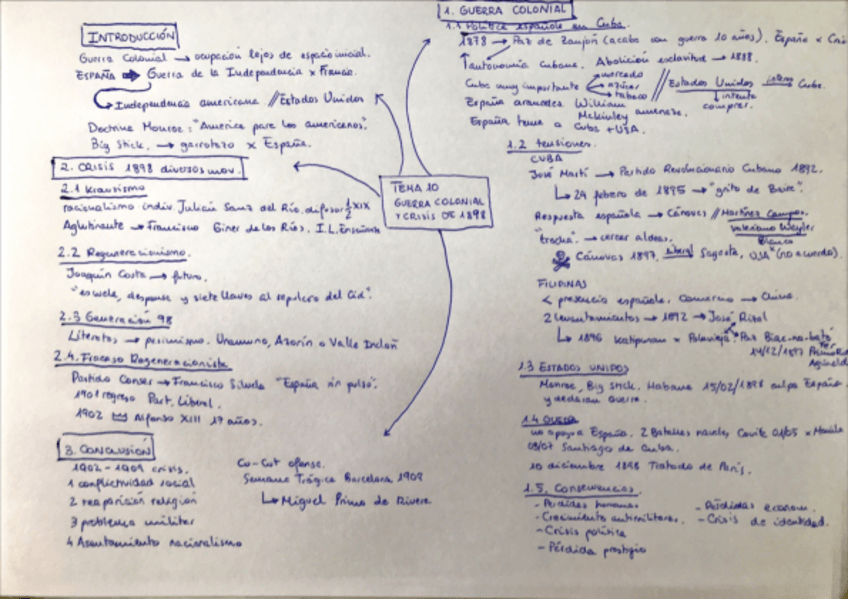 INTRODUCCIÓN
Guerra Colonial → ocupación lejos de espacio inicial.
ESPAÑA → Guerra de la Independencia x Francia.
Independencia americana // Estados Unidos
Doctrina Monroe: "America para los americanos".
Big Stick. → garrotazo x España.
2. CRISIS 1898 diversos mov.
2.1 Krausismo
racionalismo indiv. Julián Sanz del Río, difusor 1/2 XIX
Aglutinante → Francisco Giner de los Ríos. I.L.Enseñanza
2.2 Regeneracionismo.
Joaquín Costa → futuro.
"escuela, despensa y siete llaves al sepulcro del Cid".
2.3 Generación 98
Literatos → pesimismo. Unamuno, Azorín o Valle Inclán
2.4. Fracaso Regeneracionista
Partido Conser → Francisco Silvela "España sin pulso".
1901 regreso Part. Liberal.
1902 Alfonso XIII 17 años.
3. CONCLUSIÓN
1902-1909 crisis.
1 conflictividad social
2 reaparición religión
3 problema militar
4 Asentamiento nacionalismo
Cu-Cut ofensa.
Semana Trágica Barcelona 1909
Miguel Primo de Rivera
TEMA 10
GUERRA COLONIAL
Y CRISIS DE 1898
1. GUERRA COLONIAL
1.1 Política española en Cuba.
1878 → Paz de Zanjón (acaba con guerra 10 años). España x
autonomía Cubana. Abolición esclavitud → 1888.
Cuba muy importante mercado azúcar tabaco // Estados Unidos interés Cuba.
intento comprar.
España aranceles William McKinley amenaza.
España teme a Cuba + USA.
1.2 tensiones.
CUBA
José Martí → Partido Revolucionario Cubano 1892.
24 febrero de 1895 → "grito de Baire".
Respuesta española → Cánovas // Martínez Campos.
Valeriano Weyler
"trocha". → cercar aldeas.
Blanco
Cánovas 1897. liberal Sagasta, USA (no acuerdo).
FILIPINAS
< presencia española. Comercio → China.
2 levantamientos → 1892 → José Rizal
1896 Katipunan x Polavieja. Paz Biac-na-bató
14/12/1897
1.3 ESTADOS UNIDOS
Monroe, Big Stick. Habana 15/02/1898 culpa España
y declaran Guerra.
1.4 GUERRA
no apoya España. 2 Batallas navales, Cavite 01/05 x Manila
03/07 Santiago de Cuba.
10 diciembre 1898 Tratado de París.
1.5. Consecuencias.
- Pérdidas humanas
- Crecimiento antimilitares.
- Crisis política
- Pérdida prestigio
- Pérdidas econom.
- Crisis de identidad.